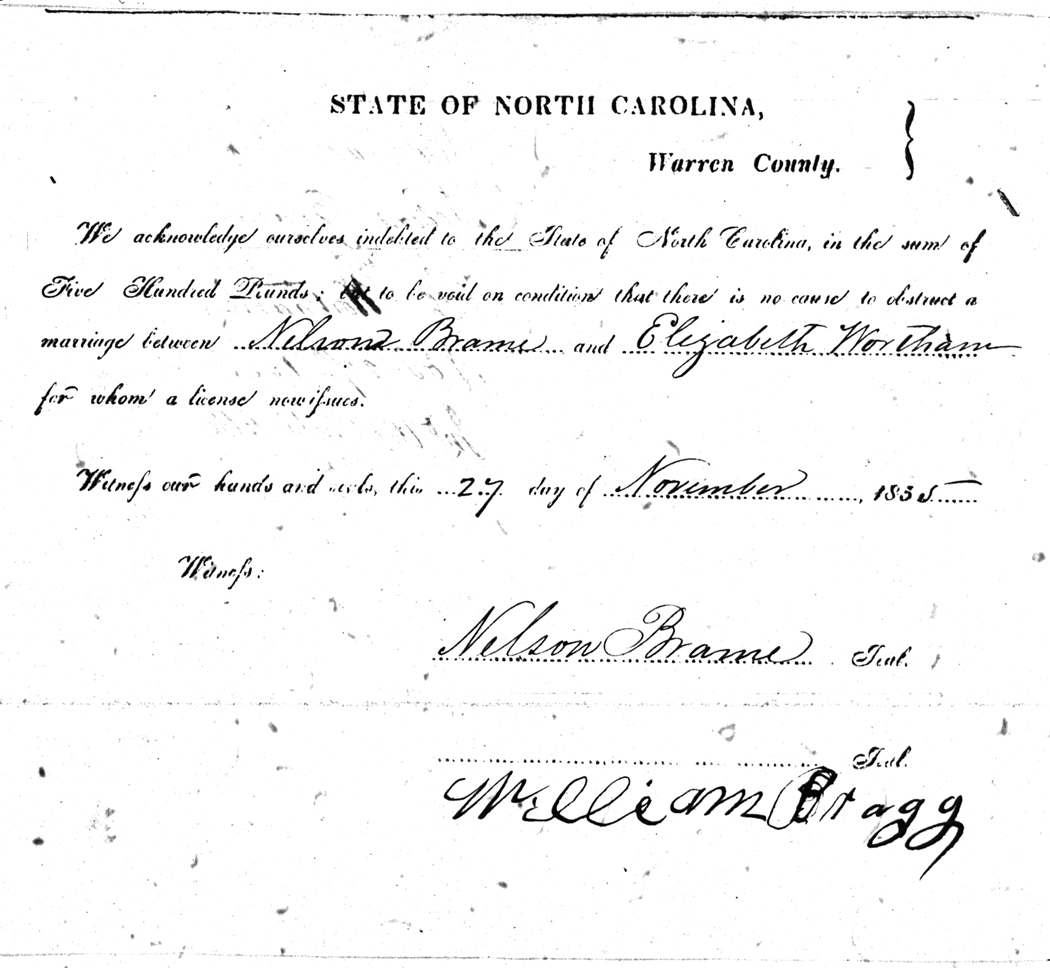 STATE OF NORTH CAROLINA,
Warren County.
We acknowledge ourselves indebted to the State of North Carolina, in the sum of
Five Hundred Pounds; but to be void on condition that there is no cause to obstruct a
marriage between Nelson Brame and Elizabeth Wortham
for whom a license now issues.
Witness our hands and seals, this 27 day of November, 1835
Witness:
Nelson Brame Seal.
Seal.
William Bragg